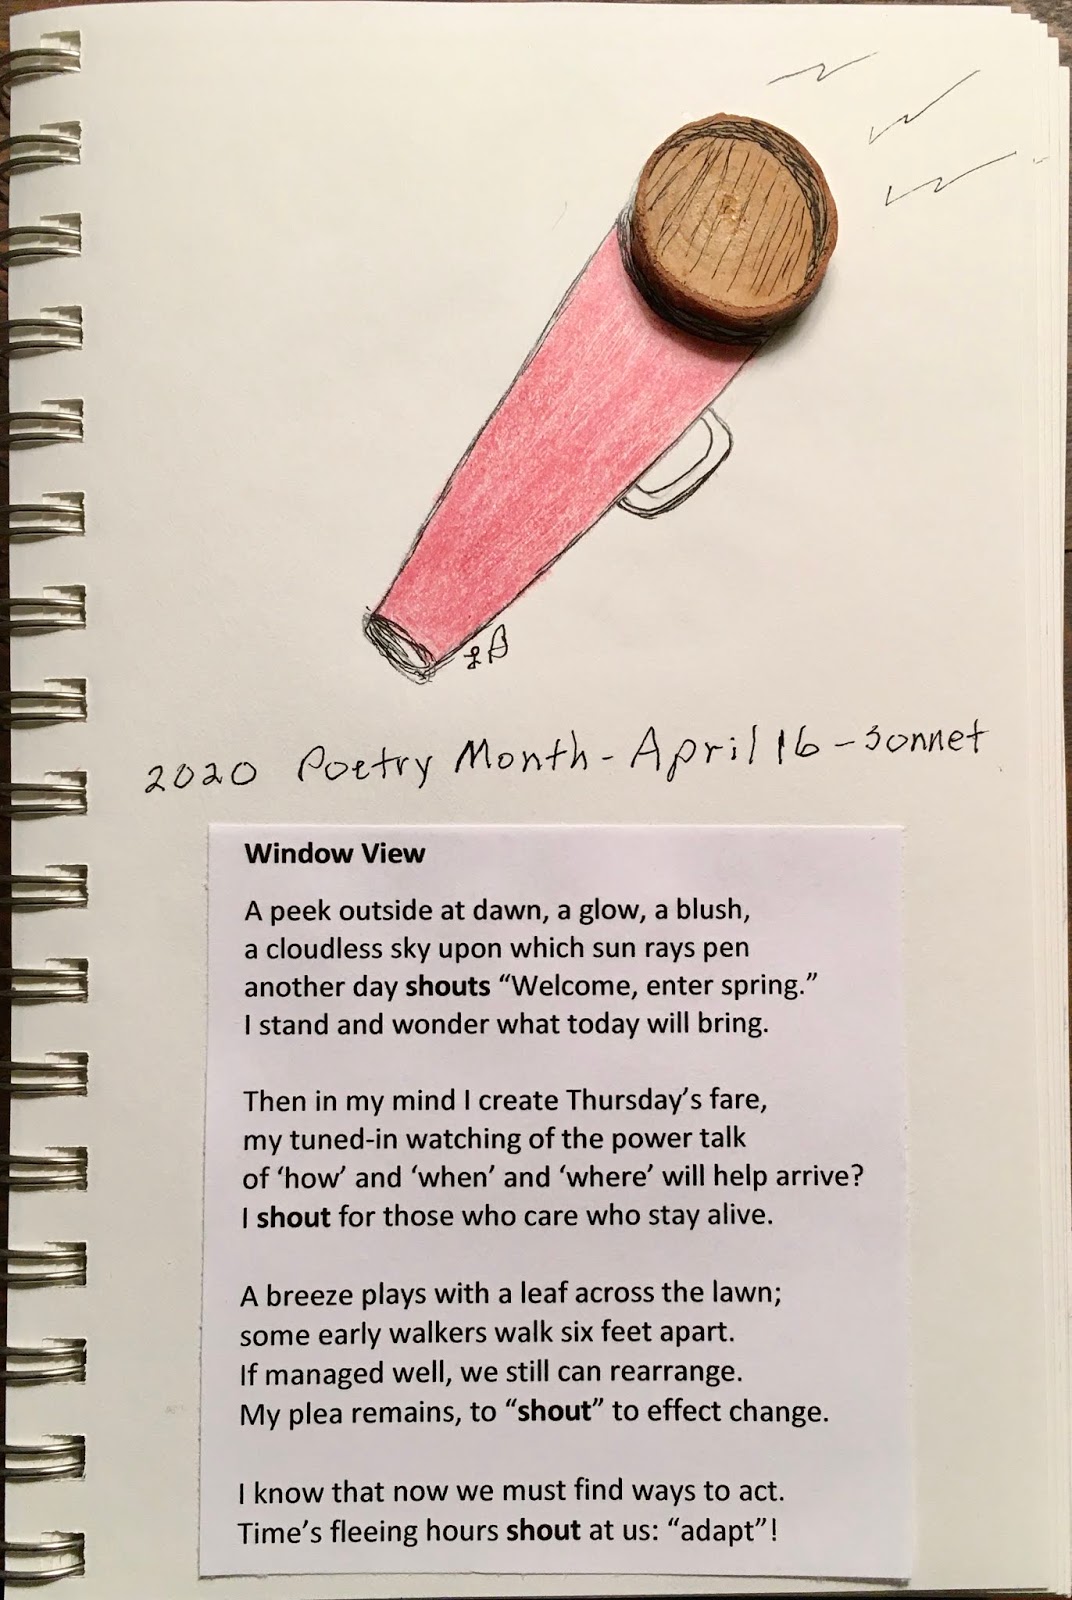 2020 Poetry Month - April 16 - Sonnet
Window View
A peek outside at dawn, a glow, a blush,
a cloudless sky upon which sun rays pen
another day shouts “Welcome, enter spring.”
I stand and wonder what today will bring.
Then in my mind I create Thursday’s fare,
my tuned-in watching of the power talk
of ‘how’ and ‘when’ and ‘where’ will help arrive?
I shout for those who care who stay alive.
A breeze plays with a leaf across the lawn;
some early walkers walk six feet apart.
If managed well, we still can rearrange.
My plea remains, to “shout” to effect change.
I know that now we must find ways to act.
Time’s fleeing hours shout at us: “adapt”!